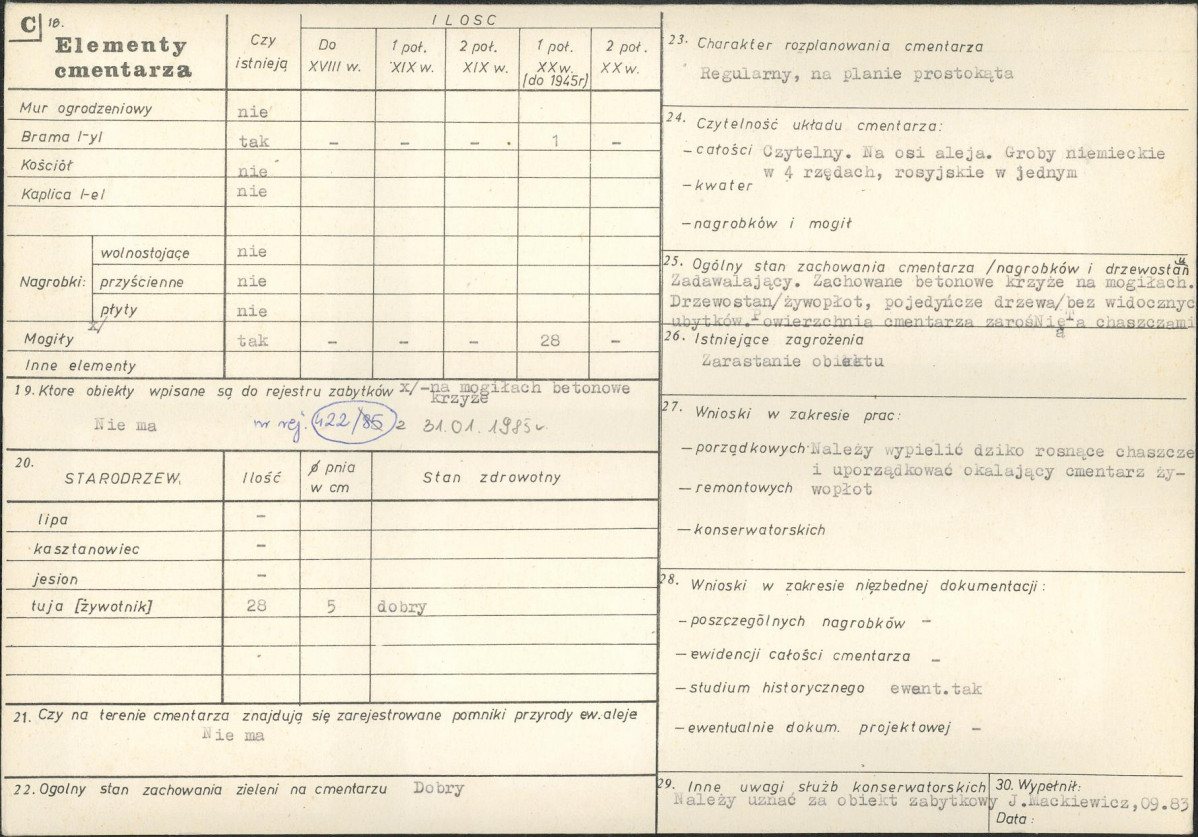 C 18.
Elementy cmentarza
Czy istnieją
ILOSC
Do XVIII w.
1 poł. XIX w.
2 poł. XIX w.
1 poł. XX w. (do 1945r)
2 poł. XX w.
Mur ogrodzeniowy nie
Brama l-yl tak – – – . 1 –
Kościół nie
Kaplica l-el nie
Nagrobki: wolnostojące nie
przyścienne nie
płyty nie
x/
Mogiły tak – – – 28 –
Inne elementy
19. Ktore obiekty wpisane są do rejestru zabytków x/-na mogiłach betonowe
krzyże
Nie ma nr rej. 422/85 z 31.01.1985r.
20.
STARODRZEW. Ilość ø pnia w cm Stan zdrowotny
lipa –
kasztanowiec –
jesion –
tuja [żywotnik] 28 5 dobry
21. Czy na terenie cmentarza znajdują się zarejestrowane pomniki przyrody ew. aleje
Nie ma
22. Ogolny stan zachowania zieleni na cmentarzu Dobry
23. Charakter rozplanowania cmentarza
Regularny, na planie prostokąta
24. Czytelność układu cmentarza:
– całości Czytelny. Na osi aleja. Groby niemieckie
w 4 rzędach, rosyjskie w jednym
– kwater
– nagrobków i mogił
25. Ogólny stan zachowania cmentarza /nagrobków i drzewostanu
Zadawalający. Zachowane betonowe krzyże na mogiłach.
Drzewostan/żywopłot, pojedyńcze drzewa/bez widocznyc
ubytków. Powierzchnia cmentarza zarośNięTa chaszczami
a
26. Istniejące zagrożenia
Zarastanie obiektu
27. Wnioski w zakresie prac:
– porządkowych Należy wypielić dziko rosnące chaszcze
i uporządkować okalający cmentarz ży-
– remontowych wopłot
– konserwatorskich
28. Wnioski w zakresie niezbednej dokumentacji:
– poszczególnych nagrobków –
– ewidencji całości cmentarza –
– studium historycznego ewent.tak
– ewentualnie dokum. projektowej –
29. Inne uwagi służb konserwatorskich
Należy uznać za obiekt zabytkowy
30. Wypełnił:
J.Mackiewicz,09.83
Data: